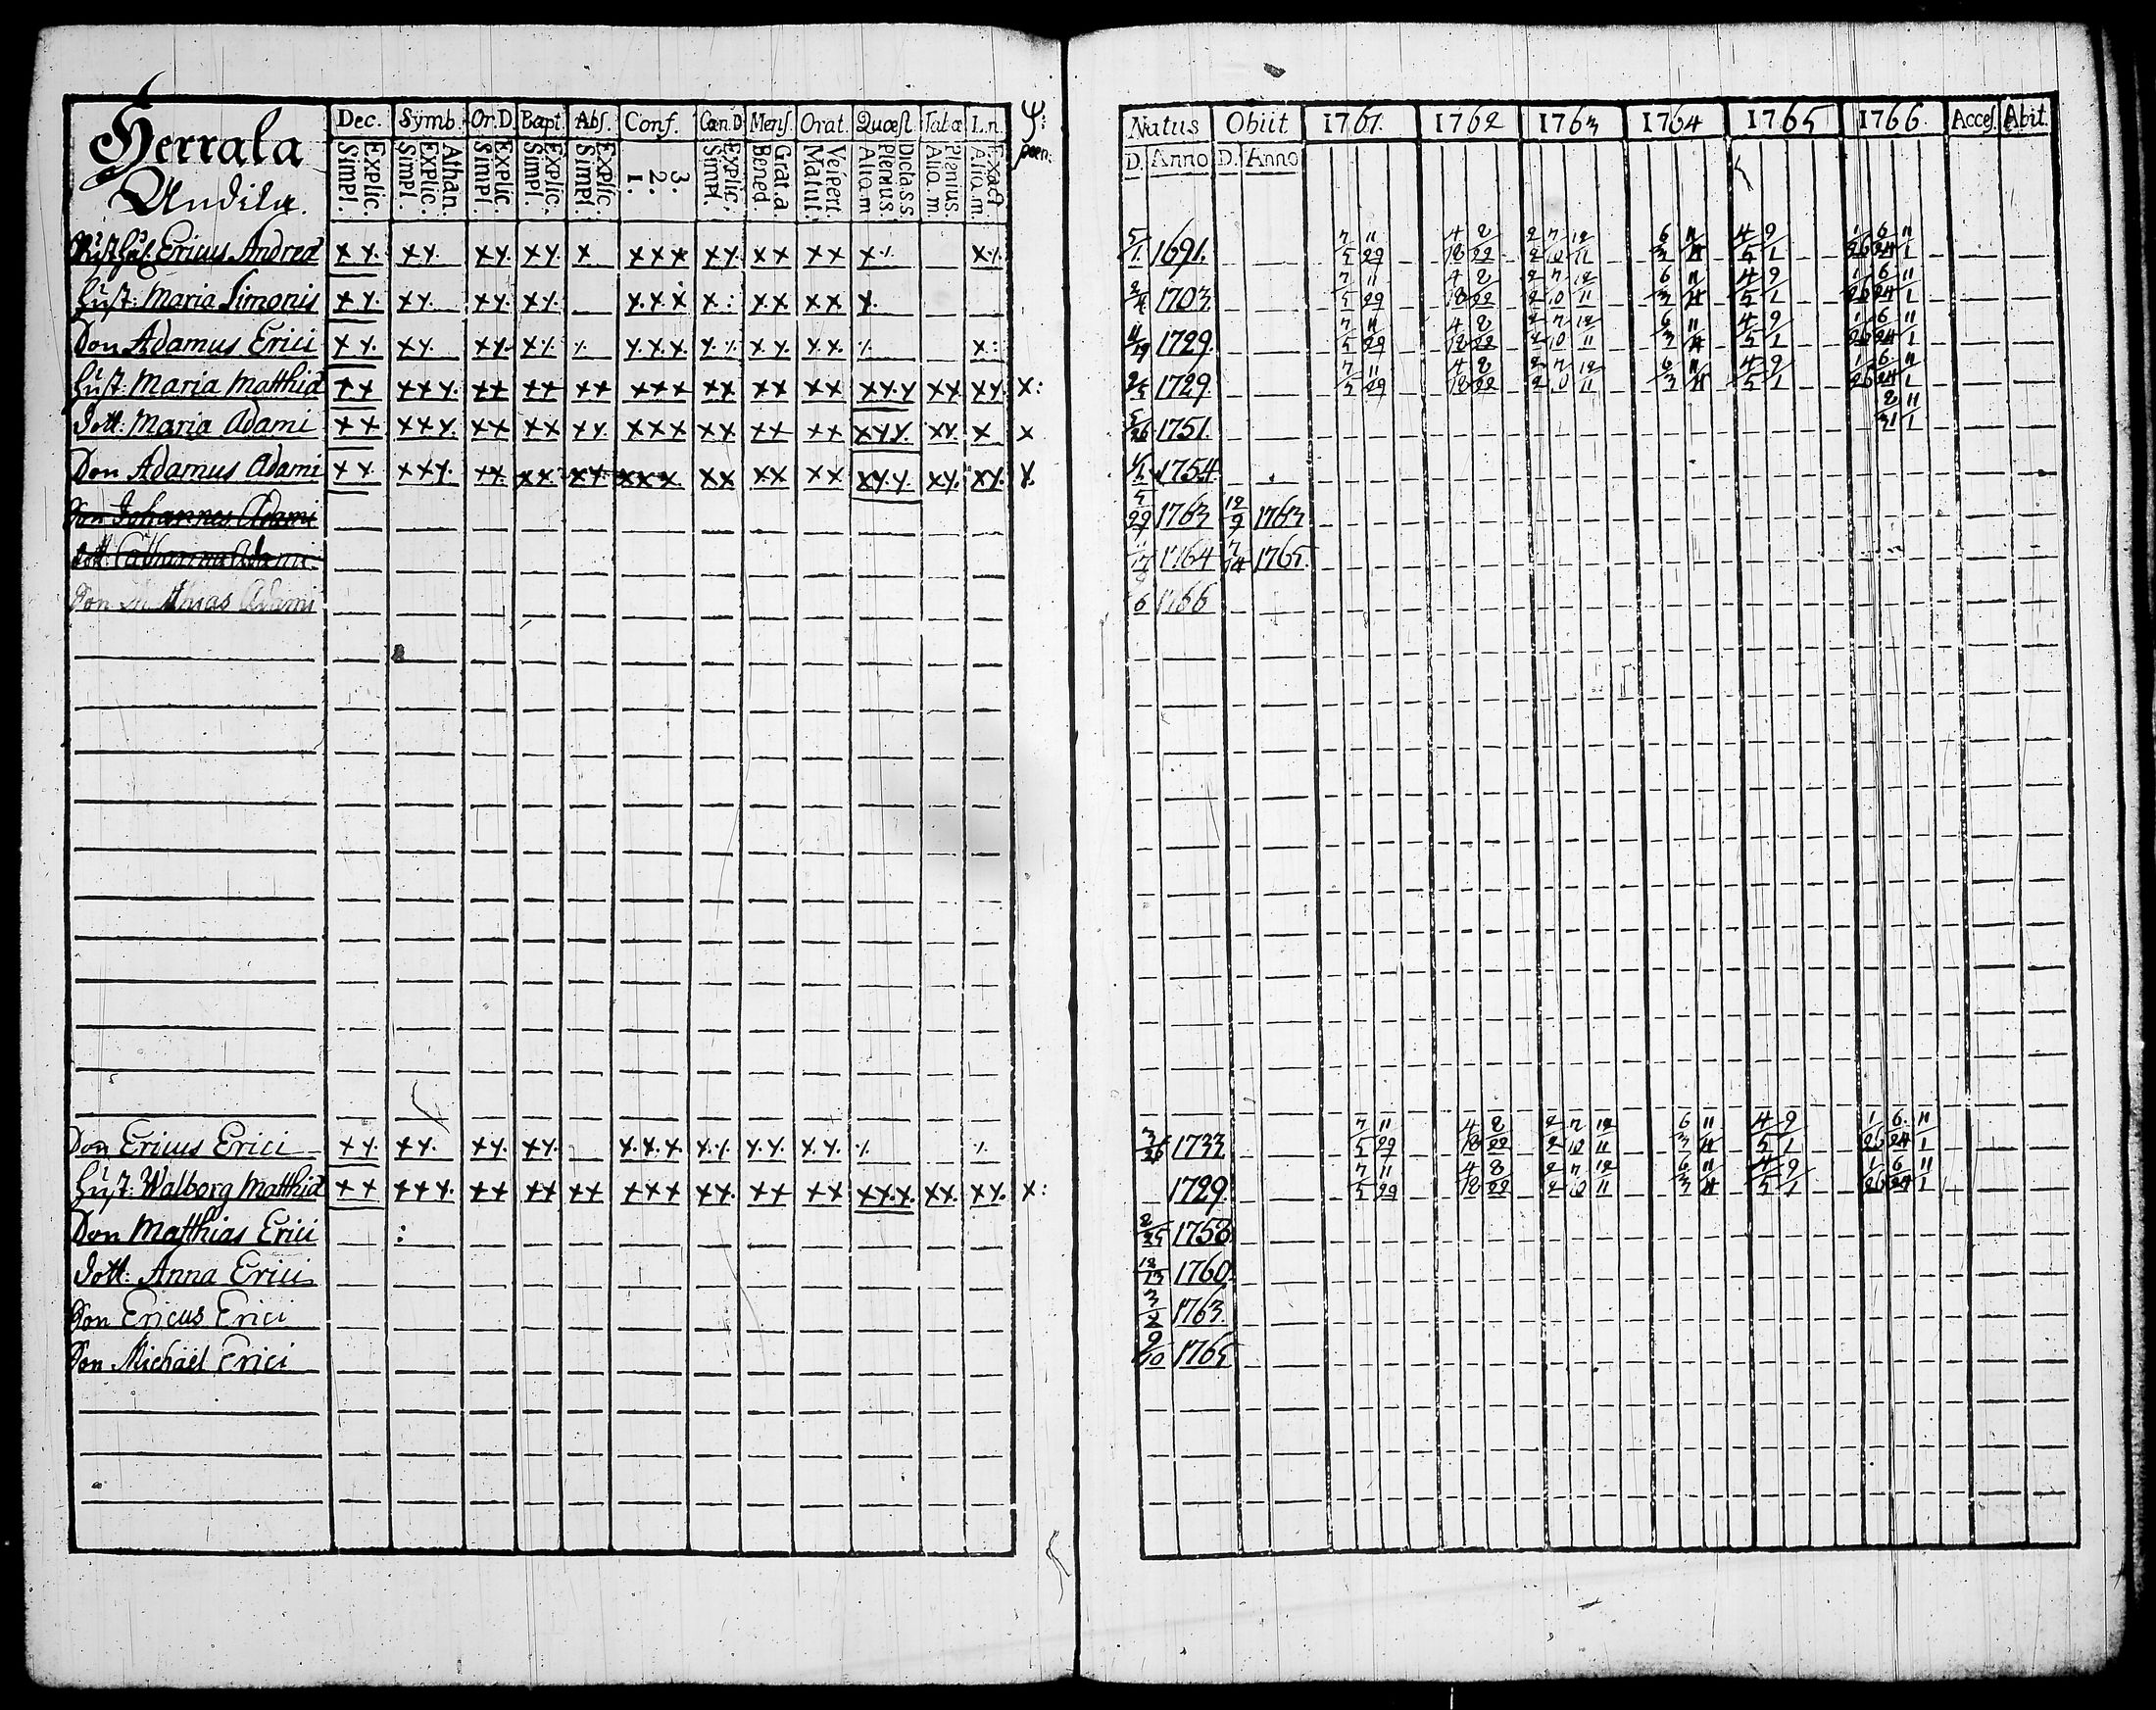 Herrala
Andila.
Dec. Symb. Or.D Bapt. Abs. Conf. Cœn.D Mens. Orat. Quæst. Tabæ I.n.
Explic. Simpl. Athan. Explic. Simpl. Explic. Simpl. Explic. Simpl. Explic. Simpl. 3. 2. 1. Explic. Simpl. Grat.a Bened. Vespert. Matut. Dicta.s.s Plenius. Aliq.m Plenius. Aliq.m. Exact Aliq.m.
Natus Obiit 1761. 1762 1763 1764 1765 1766. Acces. Abit.
D. Anno D. Anno
Ericus Andreæ x x x x x x x x x x x x x x x x x x 5/1 1691. 7/5 11/29 4/18 8/22 2/2 7/10 12/11 6/3 11/4 4/5 9/1 1/26 6/24 11/1
Hust: Maria Simonis 1703. 7/5 11/29 4/18 8/22 2/2 7/10 12/11 6/3 11/4 4/5 9/1 1/26 6/24 11/1
Son Adamus Erici 11/29 1729. 7/5 11/29 4/18 8/22 2/2 7/10 12/11 6/3 11/4 4/5 9/1 1/26 6/24 11/1
Hust: Maria Matthiæ x x x x x x x x x x x x x x x x x x x x x x x x x x x: 1729. 7/5 11/29 4/18 8/22 2/2 7/10 12/11 6/3 11/4 4/5 9/1 1/26 6/24 11/1
Dott: Maria Adami x x x x x x x x x x x x x x x x x x x x x x x x x x x 5/26 1751. 8/31 11/1
Son Adamus Adami x x x x x x x x x x x x x x x x x x x x x x x x x x x 1754.
Son Johannes Adami 5/29 1763 12/9 1763
Dott: Catharina Adami 1764 7/14 1765.
Son Adami 1766
Son Ericus Erici 1733 7/5 11/29 4/18 8/22 2/2 7/10 12/11 6/3 11/4 4/5 9/1 1/26 6/24 11/1
Hust: Walborg Matthiæ x x x x x x x x x x x x x x x x x x x x x x x x x x x: 1729. 7/5 11/29 4/18 8/22 2/2 7/10 12/11 6/3 11/4 4/5 9/1 1/26 6/24 11/1
Son Matthias Erici : 2/25 1758
Dott: Anna Erici 12/13 1760.
Son Ericus Erici 3/2 1763.
Son Michaël Erici 9/10 1765